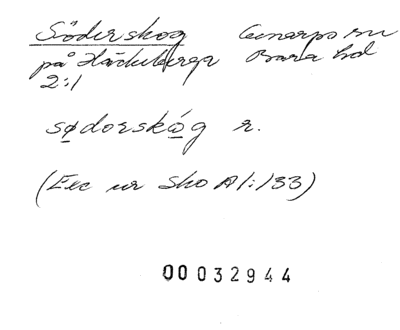 Söderskog Genarps sn
på Häckeberga Bara hd
2:1
sødorskǫ́g r.
(Exc ur Sko A1:133)
00032944